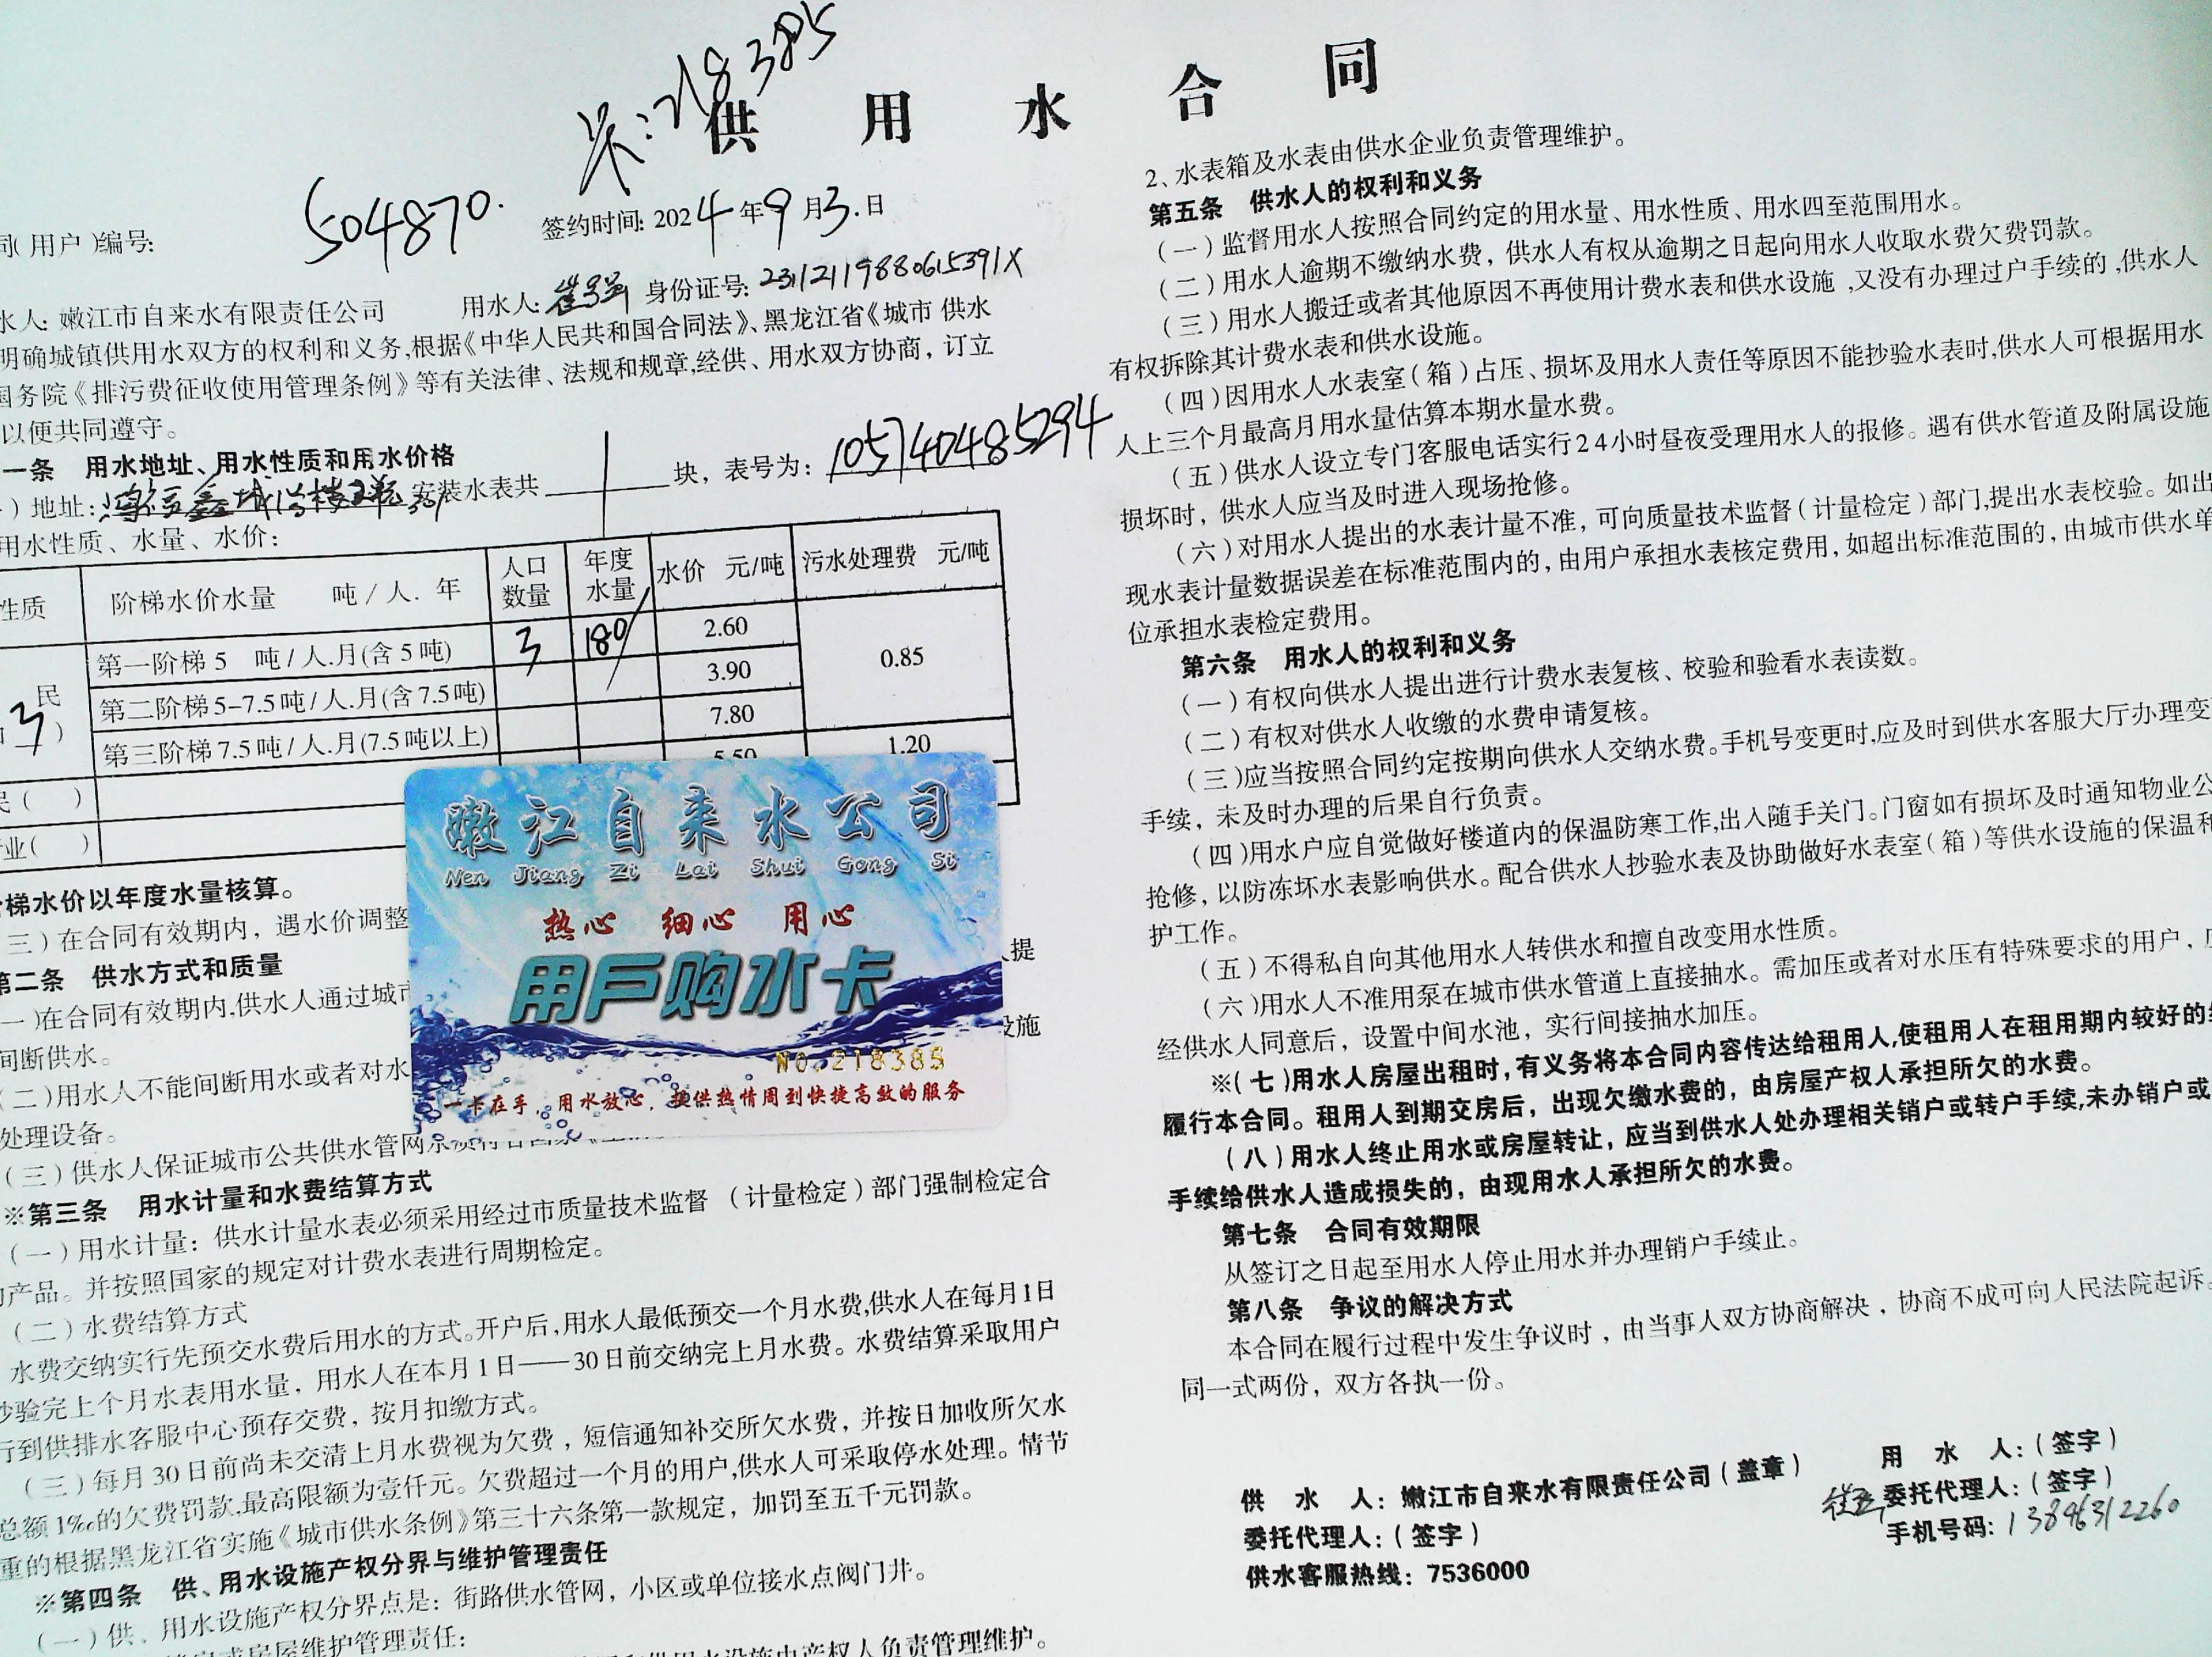 供用水合同
:218385
504870.
司(用户)编号:
签约时间: 2024年9月3.日
水人: 嫩江市自来水有限责任公司 用水人: 身份证号: 23112119880615391X
明确城镇供用水双方的权利和义务,根据《中华人民共和国合同法》、黑龙江省《城市 供水
国务院《排污费征收使用管理条例》等有关法律、法规和规章,经供、用水双方协商，订立
以便共同遵守。
一条 用水地址、用水性质和用水价格
)地址: 鑫城1号楼 301 安装水表共 1 块，表号为: 105740485294
用水性质、水量、水价:
性质 阶梯水价水量 吨/人. 年 人口数量 年度水量 水价 元/吨 污水处理费 元/吨
民 3 )
第一阶梯 5 吨/人.月(含5吨) 3 180 2.60 0.85
第二阶梯5-7.5吨/人.月(含7.5吨) 3.90
第三阶梯7.5吨/人.月(7.5吨以上) 7.80
民( ) 5.50 1.20
业( )
梯水价以年度水量核算。
三)在合同有效期内，遇水价调整
第二条 供水方式和质量
一)在合同有效期内,供水人通过城市 提
间断供水。
(二)用水人不能间断用水或者对水 设施
处理设备。
(三)供水人保证城市公共供水管网水质符合国家
※第三条 用水计量和水费结算方式
(一)用水计量：供水计量水表必须采用经过市质量技术监督 (计量检定)部门强制检定合
产品。并按照国家的规定对计费水表进行周期检定。
(二)水费结算方式
水费交纳实行先预交水费后用水的方式。开户后,用水人最低预交一个月水费,供水人在每月1日
抄验完上个月水表用水量，用水人在本月1日——30日前交纳完上月水费。水费结算采取用户
行到供排水客服中心预存交费，按月扣缴方式。
(三)每月30日前尚未交清上月水费视为欠费，短信通知补交所欠水费，并按日加收所欠水
总额1‰的欠费罚款,最高限额为壹仟元。欠费超过一个月的用户,供水人可采取停水处理。情节
重的根据黑龙江省实施《城市供水条例》第三十六条第一款规定，加罚至五千元罚款。
※第四条 供、用水设施产权分界与维护管理责任
(一)供、用水设施产权分界点是：街路供水管网，小区或单位接水点阀门井。
房屋维护管理责任:
供用水设施由产权人负责管理维护。
嫩江自来水公司
Nen Jiang Zi Lai Shui Gong Si
热心 细心 用心
用戶购水卡
NO.218385
一卡在手，用水放心，提供热情周到快捷高效的服务
2、水表箱及水表由供水企业负责管理维护。
第五条 供水人的权利和义务
(一)监督用水人按照合同约定的用水量、用水性质、用水四至范围用水。
(二)用水人逾期不缴纳水费，供水人有权从逾期之日起向用水人收取水费欠费罚款。
(三)用水人搬迁或者其他原因不再使用计费水表和供水设施,又没有办理过户手续的,供水人
有权拆除其计费水表和供水设施。
(四)因用水人水表室(箱)占压、损坏及用水人责任等原因不能抄验水表时,供水人可根据用水
人上三个月最高月用水量估算本期水量水费。
(五)供水人设立专门客服电话实行24小时昼夜受理用水人的报修。遇有供水管道及附属设施
损坏时，供水人应当及时进入现场抢修。
(六)对用水人提出的水表计量不准，可向质量技术监督(计量检定)部门,提出水表校验。如出
现水表计量数据误差在标准范围内的,由用户承担水表核定费用,如超出标准范围的,由城市供水单
位承担水表检定费用。
第六条 用水人的权利和义务
(一)有权向供水人提出进行计费水表复核、校验和验看水表读数。
(二)有权对供水人收缴的水费申请复核。
(三)应当按照合同约定按期向供水人交纳水费。手机号变更时,应及时到供水客服大厅办理变
手续，未及时办理的后果自行负责。
(四)用水户应自觉做好楼道内的保温防寒工作,出入随手关门。门窗如有损坏及时通知物业公
抢修，以防冻坏水表影响供水。配合供水人抄验水表及协助做好水表室(箱)等供水设施的保温和
护工作。
(五)不得私自向其他用水人转供水和擅自改变用水性质。
(六)用水人不准用泵在城市供水管道上直接抽水。需加压或者对水压有特殊要求的用户，应
经供水人同意后，设置中间水池，实行间接抽水加压。
※(七)用水人房屋出租时,有义务将本合同内容传达给租用人,使租用人在租用期内较好的
履行本合同。租用人到期交房后，出现欠缴水费的，由房屋产权人承担所欠的水费。
(八)用水人终止用水或房屋转让，应当到供水人处办理相关销户或转户手续,未办销户或
手续给供水人造成损失的，由现用水人承担所欠的水费。
第七条 合同有效期限
从签订之日起至用水人停止用水并办理销户手续止。
第八条 争议的解决方式
本合同在履行过程中发生争议时，由当事人双方协商解决，协商不成可向人民法院起诉。
同一式两份，双方各执一份。
供 水 人：嫩江市自来水有限责任公司(盖章)
委托代理人：(签字)
供水客服热线：7536000
用 水 人：(签字)
委托代理人：(签字)
手机号码：13846312260